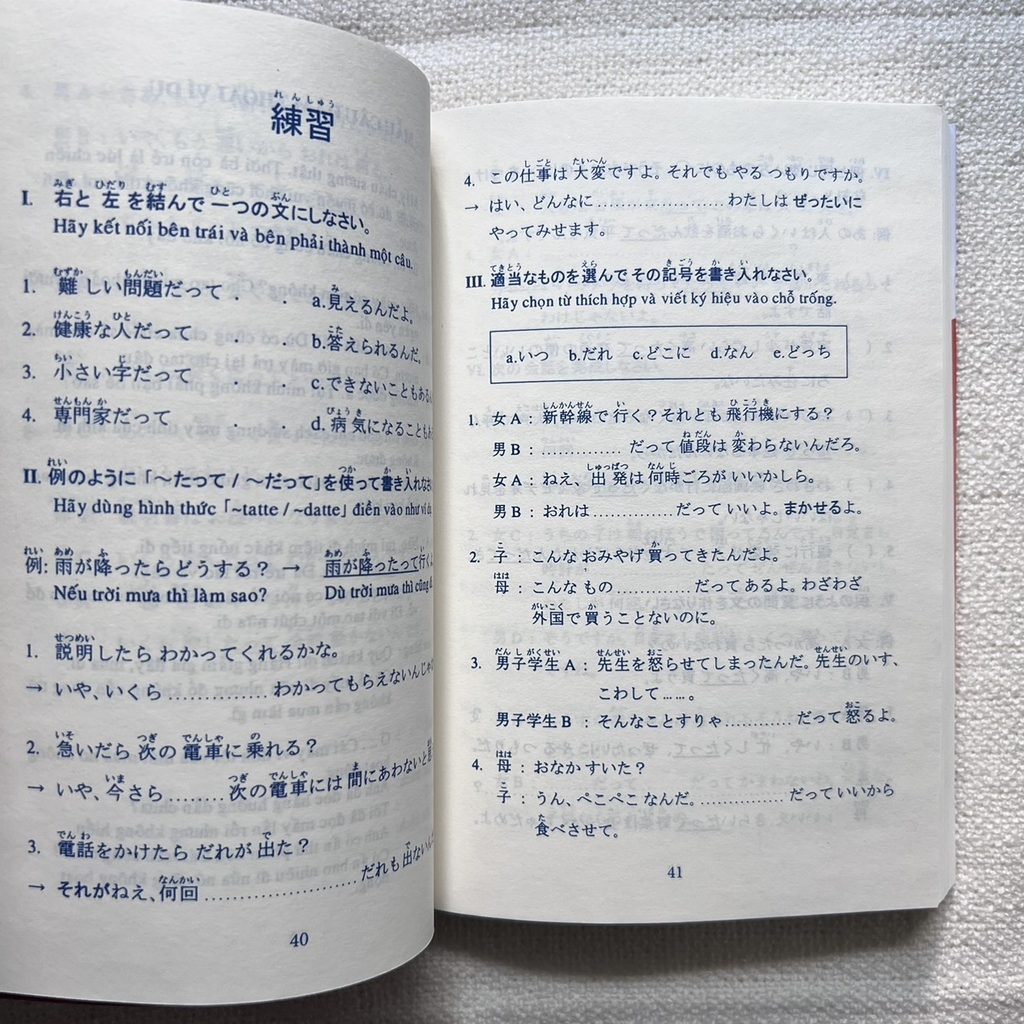 練習
I. 右と 左を結んで 一つの文にしなさい。
Hãy kết nối bên trái và bên phải thành một câu.
1. 難しい問題だって . . a.見えるんだよ。
2. 健康な人だって . . b.答えられるんだ。
3. 小さい字だって . . c.できないこともある
4. 専門家だって . . d.病気になることもあ
II. 例のように「〜たって / 〜だって」を使って書き入れなさい
Hãy dùng hình thức「~tatte / ~datte」điền vào như ví dụ.
例: 雨が降ったらどうする? → 雨が降ったって行く
Nếu trời mưa thì làm sao? Dù trời mưa thì cũng đ
1. 説明したら わかってくれるかな。
→ いや、いくら .................. わかってもらえないんじゃ
2. 急いだら 次の 電車に乗れる?
→ いや、今さら ......... 次の電車には 間にあわないと
3. 電話をかけたら だれが 出た?
→ それがねえ、何回 ........................ だれも 出ないん
40
4. この仕事は 大変ですよ。それでも やる つもりですか。
→ はい、どんなに ........................ わたしは ぜったいに
やってみせます。
III. 適当なものを 選んで その記号を書き入れなさい。
Hãy chọn từ thích hợp và viết ký hiệu vào chỗ trống.
a.いつ b.だれ c.どこに d.なん e.どっち
1. 女A : 新幹線で 行く?それとも 飛行機にする?
男B : .............. だって 値段は 変わらないんだろ。
女A : ねえ、出発は何時ごろが いいかしら。
男B : おれは .............. だって いいよ。まかせるよ。
2. 子 : こんな おみやげ 買ってきたんだよ。
母 : こんな もの .............. だって あるよ。わざわざ
外国で 買うことないのに。
3. 男子学生 A : 先生を 怒らせてしまったんだ。先生のいす、
こわして ......。
男子学生 B : そんなことすりゃ ............ だって 怒るよ。
4. 母 : おなか すいた?
子 : うん、ぺこぺこ なんだ。.............. だって いいから
食べさせて。
41